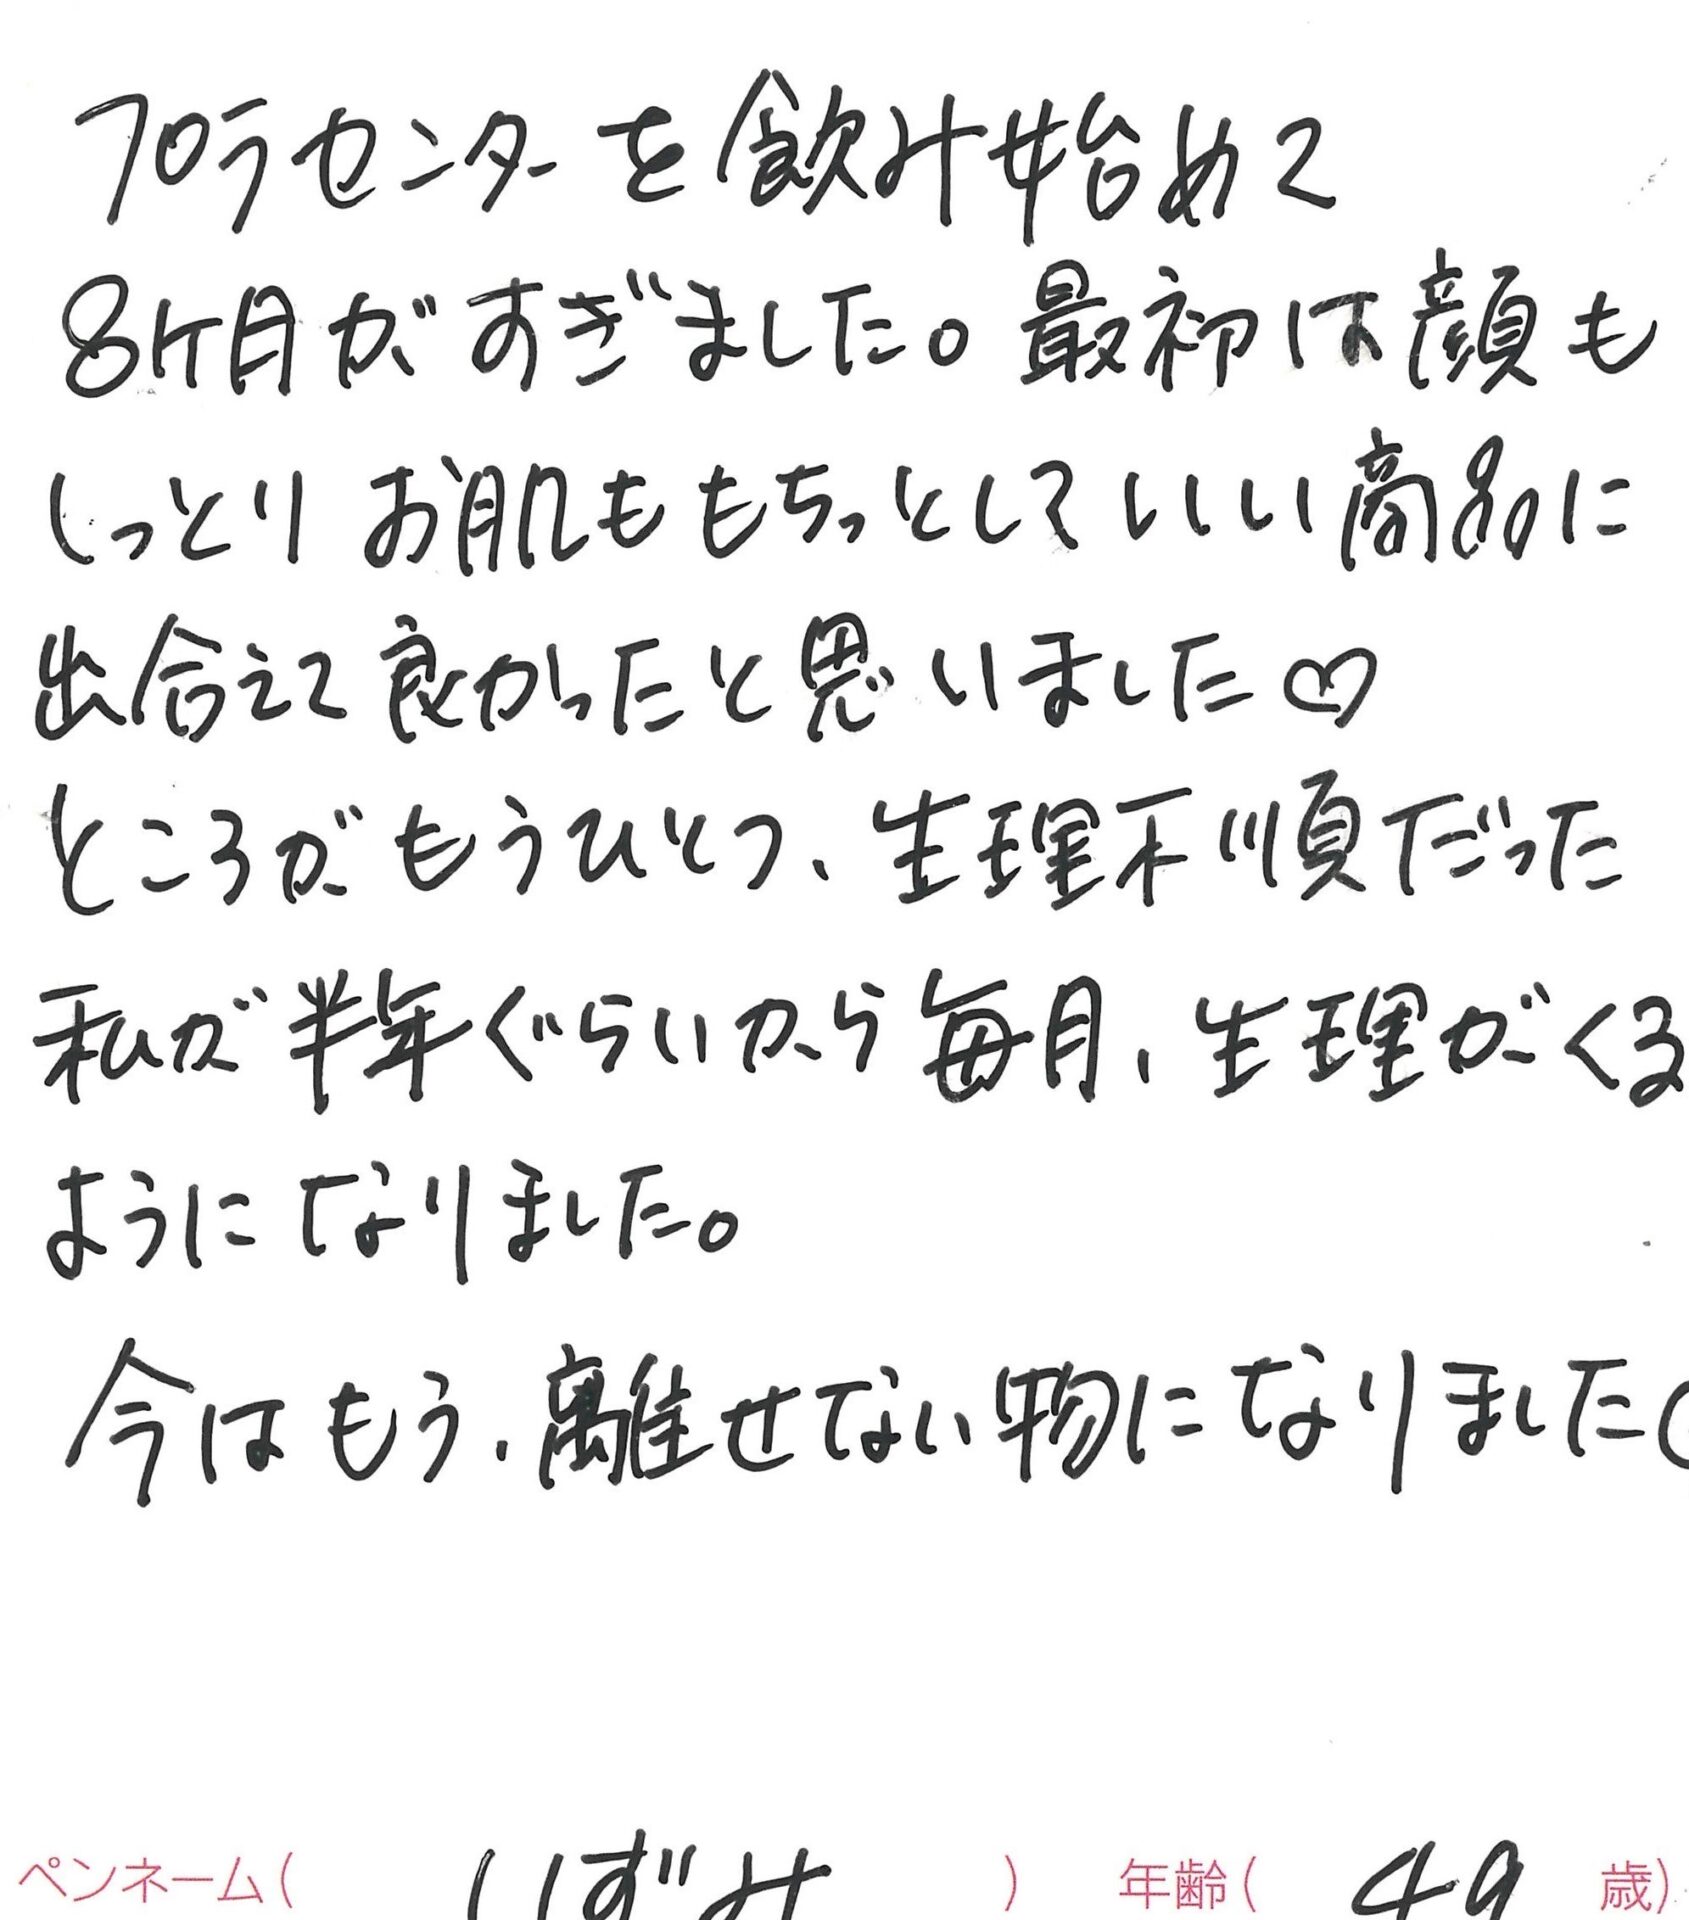 プラセンターを飲み始めて
8ケ月がすぎました。最初は顔も
しっとりお肌ももちっとしていい商品に
出合えて良かったと思いました♡
ところがもうひとつ、生理不順だった
私が半年ぐらいから毎月、生理がくる
ようになりました。
今はもう、離せない物になりました
ペンネーム( いずみ ) 年齢( 49 歳)